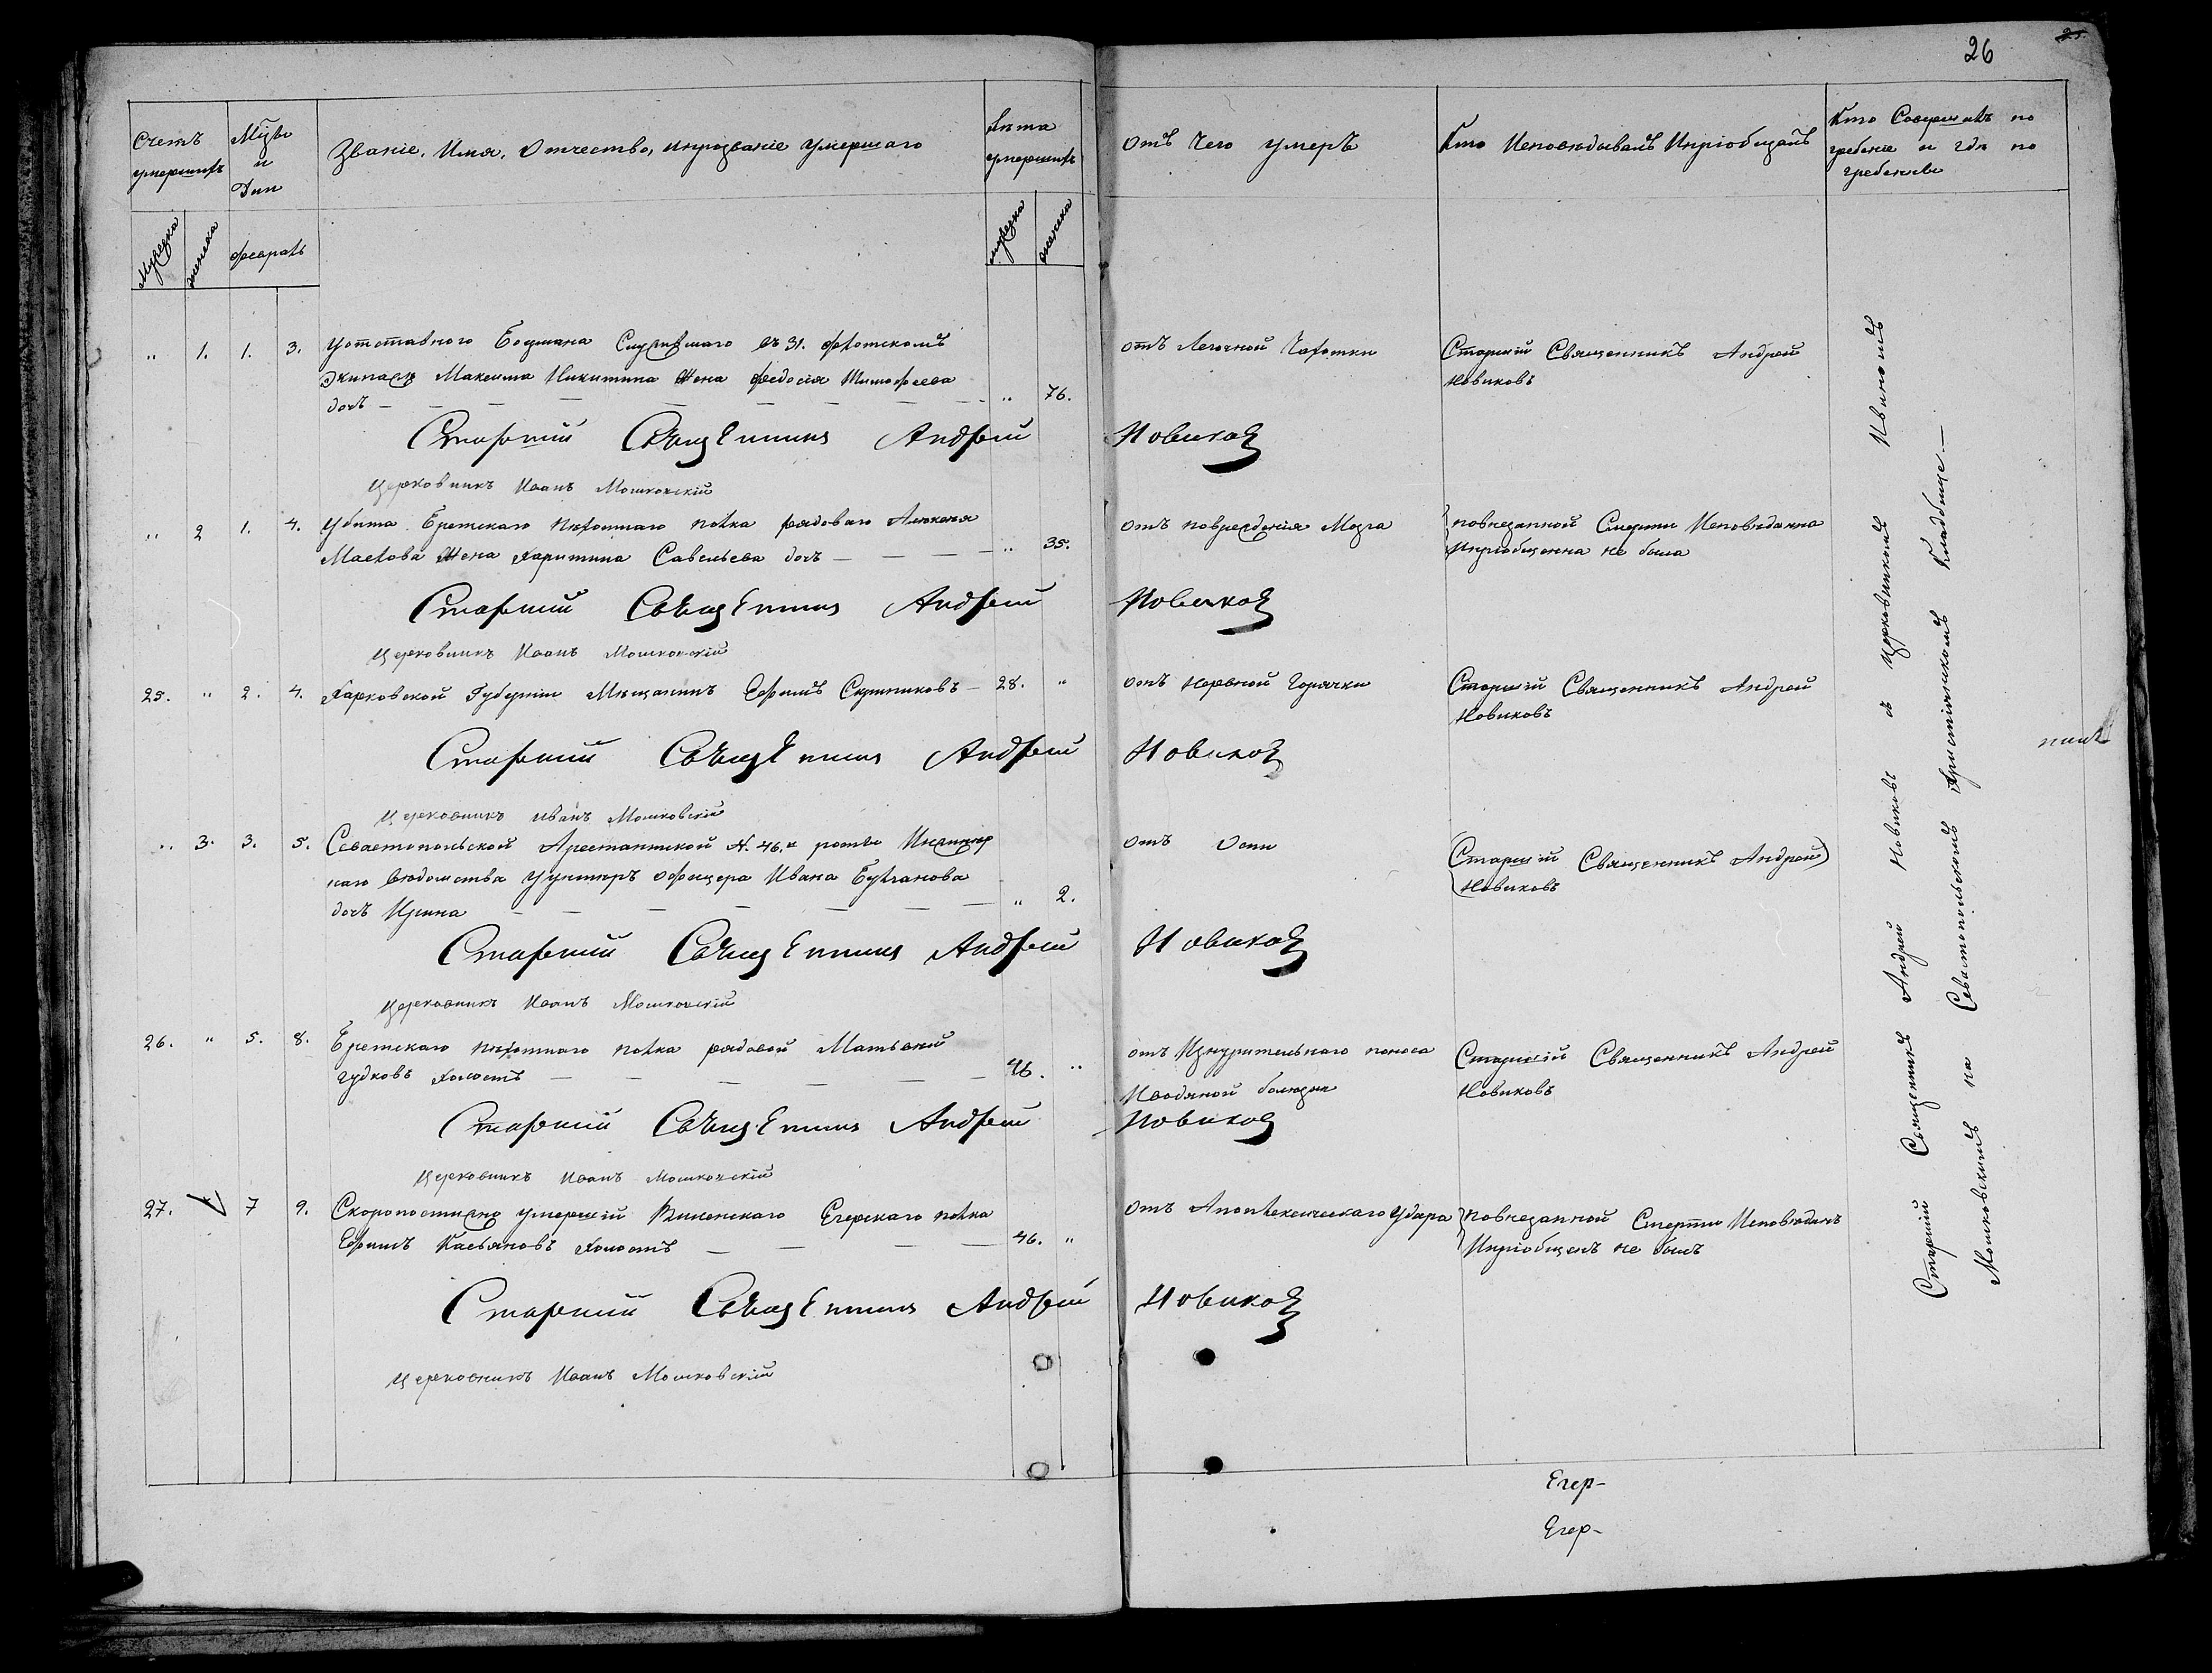 26
25.
Счетъ умершихъ
Мѣсяцъ и Дни
Званіе, Имя, Отчество, и прозваніе умершаго
Лѣта умершихъ
Отъ Чего умеръ
Кто Исповѣдывалъ И пріобщалъ
Кто Совершалъ по
гребеніе и гдѣ по
гребенъ
Мужеска
женска
Февраль
мужеска
женска
„ 1. 1. 3. У отставного Боцмана Служившаго въ 31. флотскомъ
Экипажѣ Максима Никитина Жена Федосія Тимофеева
дочь — „ 76.
отъ Легочной Чахотки
Старшій Священникъ Андрей
Новиковъ
Старшій Священникъ Андрей Новиковъ
Церковникъ Иванъ Мошковскій
„ 2 1. 4. Убита Брестскаго пѣхотнаго полка рядоваго
Маслова Жена Харитина Савельева дочь — „ 35.
отъ поврежденія Мозга
По внезапной Смерти Исповѣданна
И пріобщенна не была
Старшій Священникъ Андрей Новиковъ
Церковникъ Иванъ Мошковскій
25. „ 2. 4. Харковской Губерніи Мѣщанинъ Ефимъ Скрипниковъ — 28. „
отъ Нервной Горячки
Старшій Священникъ Андрей
Новиковъ
Старшій Священникъ Андрей Новиковъ
Церковникъ Иванъ Мошковскій
„ 3. 3. 5. Севастопольской Арестантской №. 46.й роты Инженер
наго вѣдомства У унтеръ Офицера Ивана
дочь Ирина — „ 2.
отъ Оспи
Старшій Священникъ Андрей
Новиковъ
Старшій Священникъ Андрей Новиковъ
Церковникъ Иванъ Мошковскій
26. „ 5. 8. Брестскаго пѣхотнаго полка рядовой Матвей
Гудковъ Холостъ — 46. „
отъ Изнурительнаго поноса
И водяной болезни
Старшій Священникъ Андрей
Новиковъ
Старшій Священникъ Андрей Новиковъ
Церковникъ Иванъ Мошковскій
27. 7 9. Скоропостижно умершій Виленскаго Егерскаго полка
Ефимъ Касьяновъ Холостъ — 46. „
отъ Апоплексическаго Удара
По внезапной Смерти Исповѣданъ
И пріобщенъ не былъ
Старшій Священникъ Андрей Новиковъ
Церковникъ Иванъ Мошковскій
Старшій Священникъ Андрей Новиковъ съ Церковникомъ Иваномъ
Мошковскимъ на Севастопольскомъ Христіянскомъ Кладбище —
Егер-
Егер-